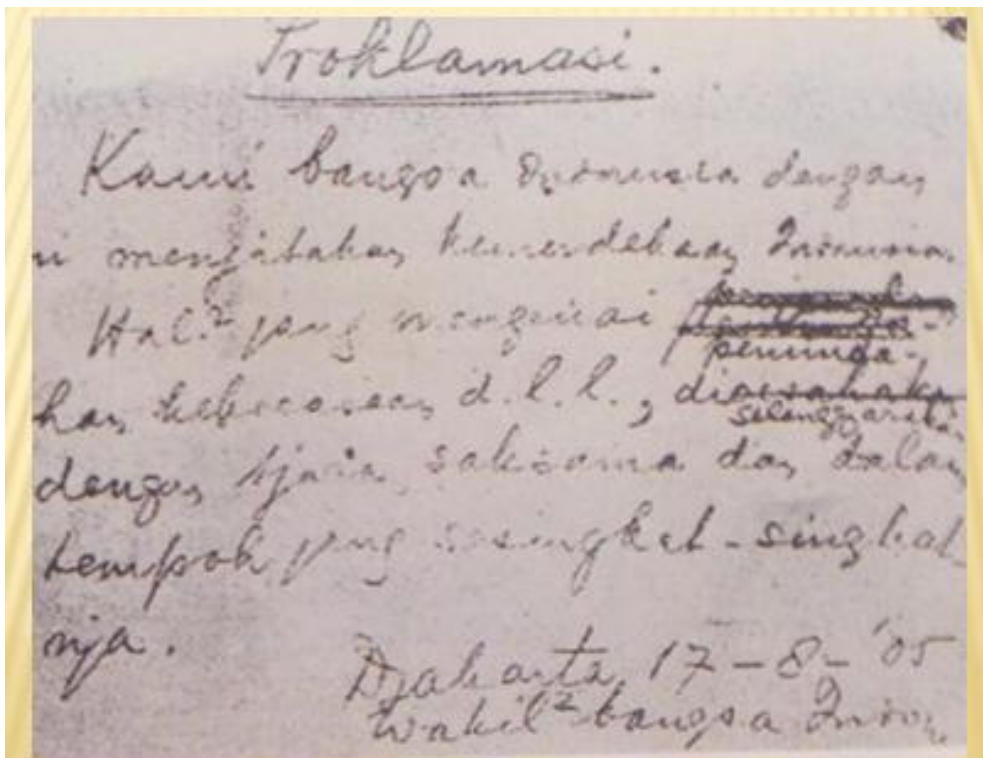 Proklamasi.
Kami bangsa Indonesia dengan
ni menjatakan kemerdekaan Indonesia.
Hal² jang mengenai
peminda-
han kekoeasaan d.l.l., dioesahakan
selenggarakan
dengan tjara saksama dan dalam
tempoh jang sesingkat-singkat
nja.
Djakarta, 17-8-'05
Wakil² bangsa Indon